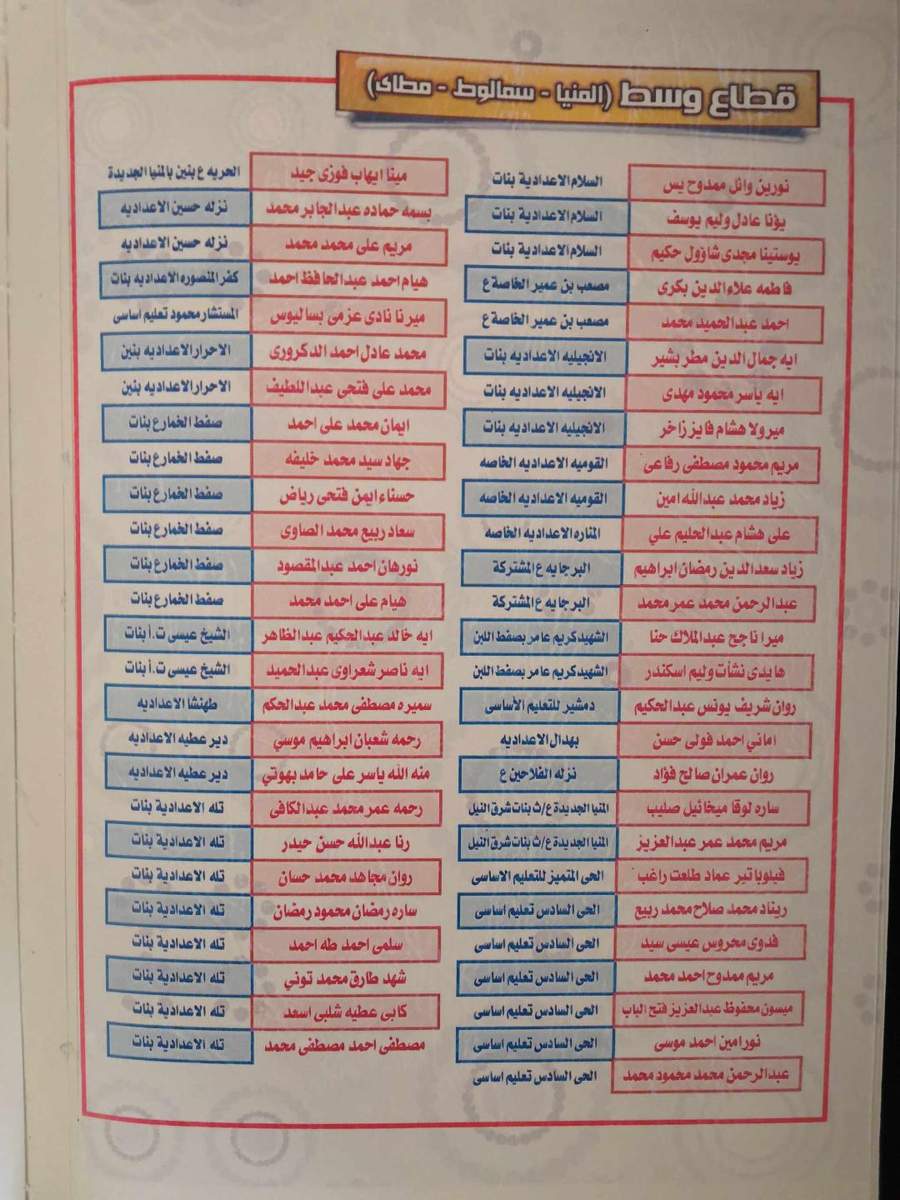 قطاع وسط (المنيا - سمالوط - مطاى)
نورين وائل ممدوح يس السلام الاعدادية بنات
يؤنا عادل وليم يوسف السلام الاعدادية بنات
يوستينا مجدى شاؤول حكيم السلام الاعدادية بنات
فاطمه علاء الدين بكرى مصعب بن عمير الخاصة ع
احمد عبد الحميد محمد مصعب بن عمير الخاصة ع
ايه جمال الدين مطر بشير الانجيليه الاعداديه بنات
ايه ياسر محمود مهدى الانجيليه الاعداديه بنات
ميرولا هشام فايز زاخر الانجيليه الاعداديه بنات
مريم محمود مصطفى رفاعى القوميه الاعداديه الخاصه
زياد محمد عبد الله امين القوميه الاعداديه الخاصه
على هشام عبد الحليم علي المناره الاعداديه الخاصه
زياد سعد الدين رمضان ابراهيم البرجايه ع المشتركة
عبد الرحمن محمد عمر محمد البرجايه ع المشتركة
ميرا ناجح عبد الملاك حنا الشهيد كريم عامر بصفط اللبن
هايدى نشأت وليم اسكندر الشهيد كريم عامر بصفط اللبن
روان شريف يونس عبد الحكيم دمشير للتعليم الأساسى
اماني احمد فولى حسن بهدال الاعداديه
روان عمران صالح فؤاد نزله الفلاحين ع
ساره لوقا ميخائيل صليب المنيا الجديدة ع/ث بنات شرق النيل
مريم محمد عمر عبد العزيز المنيا الجديدة ع/ث بنات شرق النيل
فيلوباتير عماد طلعت راغب الحى المتميز للتعليم الاساسى
ريناد محمد صلاح محمد ربيع الحى السادس تعليم اساسى
فدوى محروس عيسى سيد الحى السادس تعليم اساسى
مريم ممدوح احمد محمد الحى السادس تعليم اساسى
ميسون محفوظ عبد العزيز فتح الباب الحى السادس تعليم اساسى
نور امين احمد موسى الحى السادس تعليم اساسى
عبد الرحمن محمد محمود محمد الحى السادس تعليم اساسى
مينا ايهاب فوزى جيد الحريه ع بنين بالمنيا الجديدة
بسمه حماده عبد الجابر محمد نزله حسين الاعداديه
مريم على محمد محمد نزله حسين الاعداديه
هيام احمد عبد الحافظ احمد كفر المنصوره الاعداديه بنات
ميرنا نادى عزمى بساليوس المستشار محمود تعليم اساسى
محمد عادل احمد الدكرورى الاحرار الاعداديه بنين
محمد على فتحى عبد اللطيف الاحرار الاعداديه بنين
ايمان محمد على احمد صفط الخمار ع بنات
جهاد سيد محمد خليفه صفط الخمار ع بنات
حسناء ايمن فتحى رياض صفط الخمار ع بنات
سعاد ربيع محمد الصاوى صفط الخمار ع بنات
نورهان احمد عبد المقصود صفط الخمار ع بنات
هيام على احمد محمد صفط الخمار ع بنات
ايه خالد عبد الحكيم عبد الظاهر الشيخ عيسى ت.أ بنات
ايه ناصر شعراوى عبد الحميد الشيخ عيسى ت.أ بنات
سميره مصطفى محمد عبد الحكم طهنشا الاعداديه
رحمه شعبان ابراهيم موسي دير عطيه الاعداديه
منه الله ياسر على حامد بهوتي دير عطيه الاعداديه
رحمه عمر محمد عبد الكافى تله الاعدادية بنات
رنا عبد الله حسن حيدر تله الاعدادية بنات
روان مجاهد محمد حسان تله الاعدادية بنات
ساره رمضان محمود رمضان تله الاعدادية بنات
سلمى احمد طه احمد تله الاعدادية بنات
شهد طارق محمد توني تله الاعدادية بنات
كابى عطيه شلبى اسعد تله الاعدادية بنات
مصطفى احمد مصطفى محمد تله الاعدادية بنات